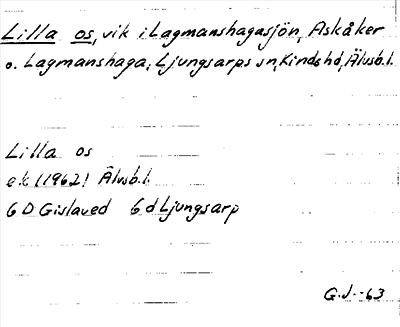 Lilla os, vik i Lagmanshagasjön, Askåker
o. Lagmanshaga; Ljungsarps sn, Kinds hd, Älvsb.l.
Lilla os
ek (1962) Älvsb.l.
6 D Gislaved 6 d Ljungsarp
G.J.-63